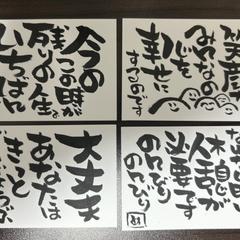 今の
この時が
残りの人生で
いちばん
笑顔は
みんなの
心を
幸せに
するのです
大丈夫
あなたは
きっと
休息が
必要です
のんびり
のんびり